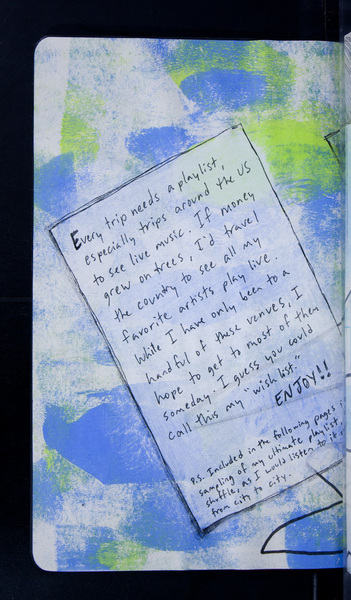 Every trip needs a playlist,
especially trips around the US
to see live music. If money
grew on trees, I'd travel
the country to see all my
favorite artists play live.
While I have only been to a
handful of these venues, I
hope to get to most of them
someday. I guess you could
call this my "wish list."
ENJOY!!
P.S. Included in the following pages is
sampling of my ultimate playlist,
shuffle, as I would listen to it
from city to city.